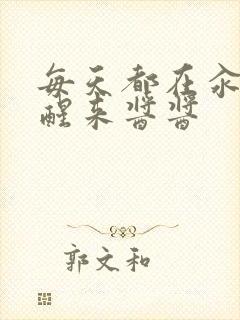 每天都在汆
醒来酱酱
郭文和